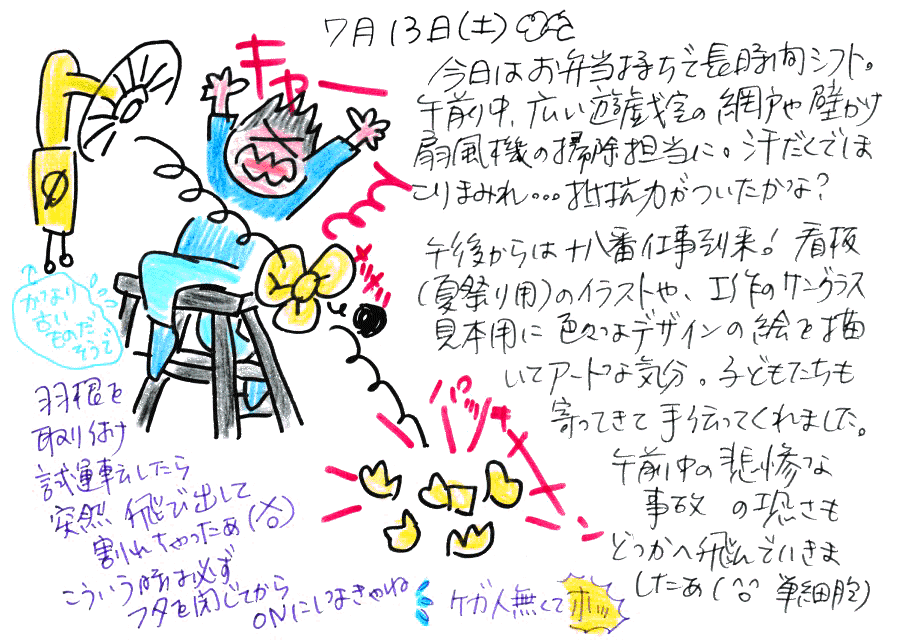 7月13日(土)
今日はお弁当持ちで長時間シフト。
午前中、広い遊戯室の網戸や壁かけ
扇風機の掃除担当に。汗だくでほ
こりまみれ…抵抗力がついたかな?
午後からは十八番仕事到来!看板
(夏祭り用)のイラストや、工作のサングラス
見本用に色々なデザインの絵を描
いてアートな気分。子どもたちも
寄ってきて手伝ってくれました。
午前中の悲惨な
事故の恐さも
どっかへ飛んでいきま
したあ(^o^ 単細胞)
キャー
かなり
古い
ものだ
そうで
羽根を
取り付け
試運転したら
突然飛び出して
割れちゃったぁ(>o<)
こういう時は必ず
フタを閉じてから
ONにしなきゃね
ケガ人無くてホッ